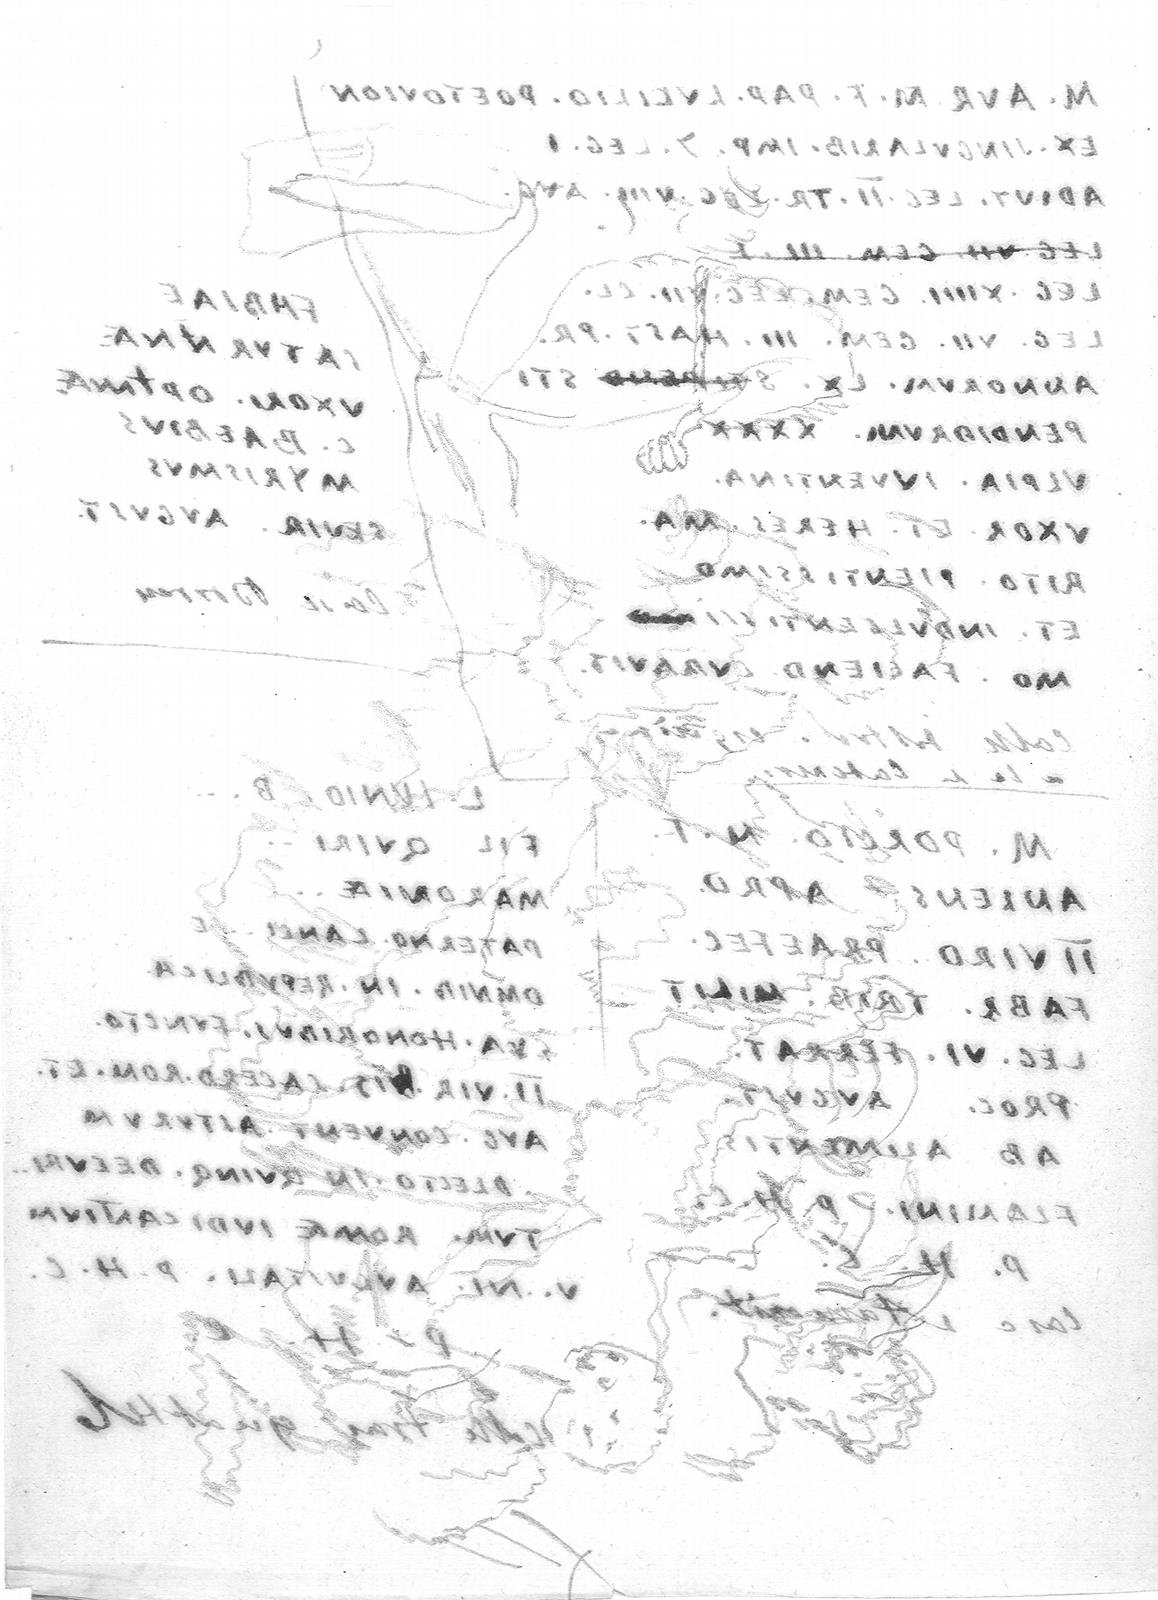 M. AVR. M. F. PAP. LVCILIO. POETOVION
EX. SINGVLARIB. IMP. 7. LEG. I
ADIVT. LEG. II. TR. LEG. VIII. AVG.
LEG. VII. GEM. III.
LEG. XIIII. GEM. LEG. VII. CL.
LEG. VII. GEM. III. HAST. PR.
ANNORVM. LX. STI
PENDIORVM. XXXX
VLPIA. IVVENTINA.
VXOR. ET. HERES. MA.
RITO. PIENTISSIMO
ET. INDVLGENTISSI
MO. FACIEND. CVRAVIT.
FABIAE
SATVRNINAE
VXORI. OPTIMAE
C. BAEBIVS
MYRISMVS
SEVIR. AVGVST.
M. PORCIO. N. F.
ANIENS APRO.
II VIRO. PRAEFEC.
FABR. TRIB. MILIT
LEG. VI. FERRAT.
PROC. AVGVST.
AB ALIMENTIS
FLAMINI. P. H. C.
P. H. C.
L. IVNIO. B...
FIL QVIRI...
MARONIAE...
PATERNO. LANCI...E
OMNIB. IN. REPVBLICA
SVA. HONORIBVS. FVNCTO.
II. VIR. BIS. SACERD. ROM. ET.
AVG. CONVENT. ASTVRVM
DLECTO. IN. QVINQ. DECVRI..
TVM. ROMAE IVDICANTIVM
P. H. C